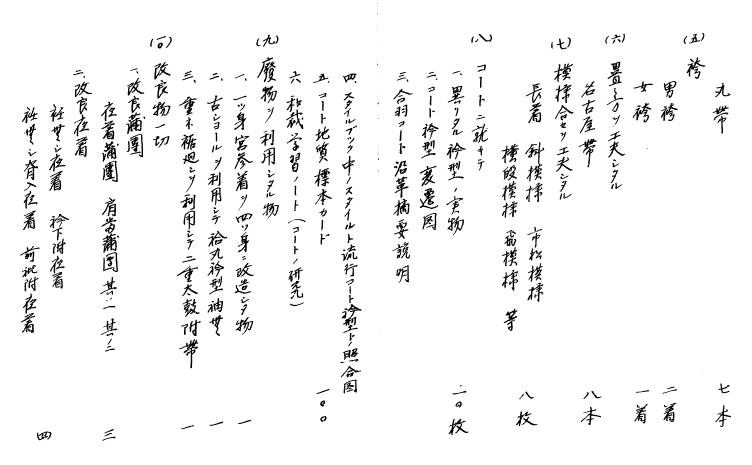 丸帶 七本
(五) 袴
男袴 二着
女袴 一着
(六) 疊ミ方ヲ工夫シタル
名古屋帶 八本
(七) 模様合セヲ工夫シタル
長着 斜模様 市松模様
横段模様 飛模様 等 八枚
(八) コートニ就キテ
一、異リタル衿型ノ実物 二〇枚
二、コート衿型変遷図
三、合羽コート沿革摘要説明
四、スタイルブック中ノスタイルト流行コート衿型トノ照合図
五、コート地質標本カード 一〇〇
六、和裁学習ノート(コートノ研究)
(九) 廢物ヲ利用シタル物
一、一ッ身宮参着ヲ四ッ身ニ改造シタ物 一
二、古ショールヲ利用シテ袷丸衿型袖無 一
三、重ネ裾廻シヲ利用シテ二重太鼓附帶 一
(一〇) 改良物一切
一、改良蒲團
夜着蒲團 肩當蒲團 其ノ一 其ノ二 三
二、改良夜着
衽無シ夜着 衿下附夜着
衽無シ脊入夜着 前衽附夜着 四